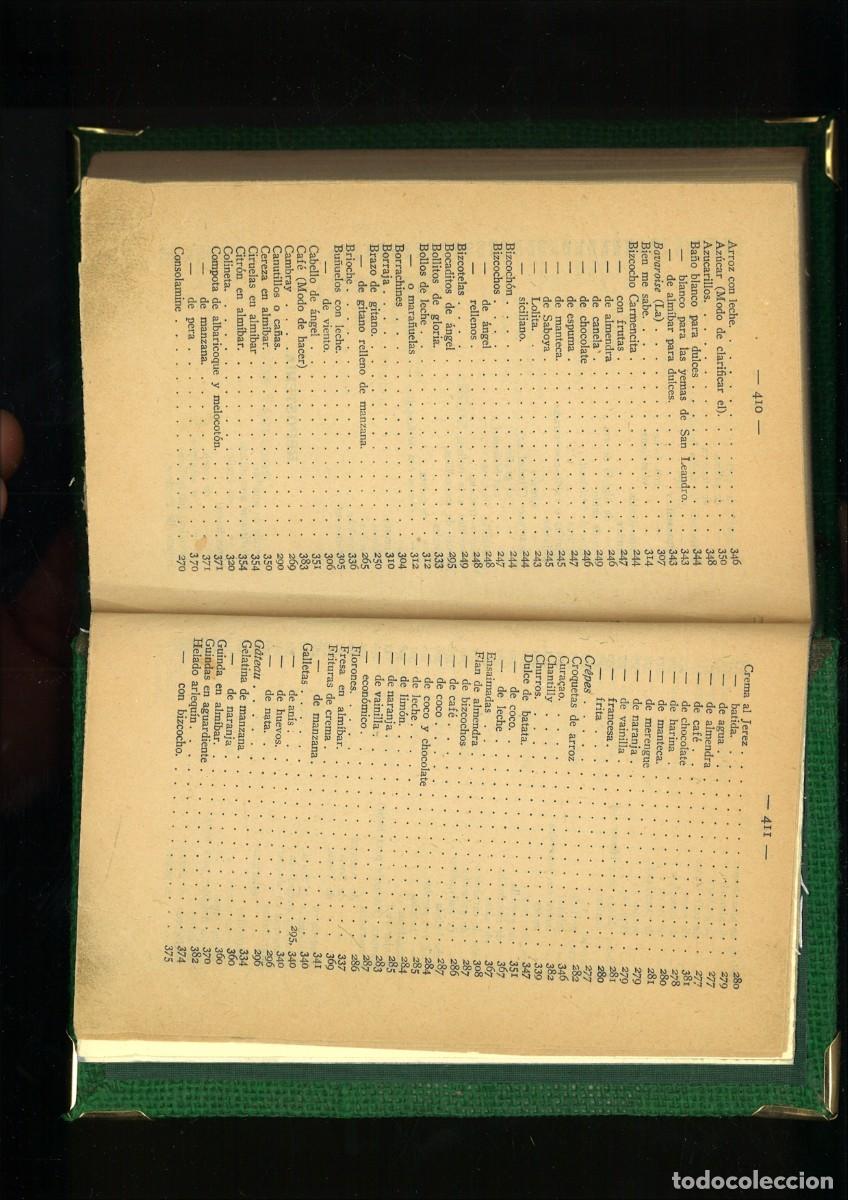 — 410 —
Arroz con leche. 346
Azúcar (Modo de clarificar el). 350
Azucarillos. 348
Baño blanco para dulces 344
— blanco para las yemas de San Leandro. 343
— de almibar para dulces. 343
Bavaroise (La) 307
Bien me sabe. 314
Bizcocho Carmencita 244
— con frutas 247
— de almendra 246
— de canela 249
— de chocolate 246
— de espuma 247
— de manteca. 245
— de Saboya 245
— Lolita. 243
— siciliano. 244
Bizcochón. 244
Bizcochos. 247
— de ángel 248
— rellenos 248
Bizcotelas 249
Bocaditos de ángel 295
Bollitos de gloria. 333
Bollos de leche 312
— o marañuelas 312
Borrachines 304
Borraja 310
Brazo de gitano. 250
— de gitano relleno de manzana. 265
Brioche. 336
Buñuelos con leche. 305
— de viento. 306
Cabello de ángel 351
Café (Modo de hacer) 383
Cambray 269
Canutillos o cañas. 290
Cereza en almíbar. 350
Ciruelas en almíbar 354
Citrón en almíbar. 354
Colineta. 320
Compota de albaricoque y melocotón. 371
— de manzana. 371
— de pera 370
Consolamine 270
— 411 —
Crema al Jerez 280
— batida. 279
— de agua 277
— de almendra 277
— de café 381
— de chocolate 278
— de harina 280
— de manteca. 281
— de merengue 279
— de naranja 279
— de vainilla 281
— francesa 280
— frita 277
Crêpes 282
Croquetas de arroz 346
Curaçao 382
Chantilly 339
Churros. 347
Dulce de batata. 351
— de coco. 367
— de leche 367
Ensaimadas 308
Flan de almendra 286
— de bizcochos 287
— de café 287
— de coco 284
— de coco y chocolate 285
— de leche. 284
— de limón. 285
— de naranja 283
— de vainilla 287
— económico 286
Florones. 337
Fresa en almíbar. 369
Frituras de crema 341
— de manzana 340
Galletas 295. 340
— de anis 340
— de huevos. 296
— de nata. 296
Gâteau 334
Gelatina de manzana 360
— de naranja 360
Guinda en almíbar. 370
Guindas en aguardiente 382
Helado arlequín. 374
— con bizcocho. 375
todocoleccion